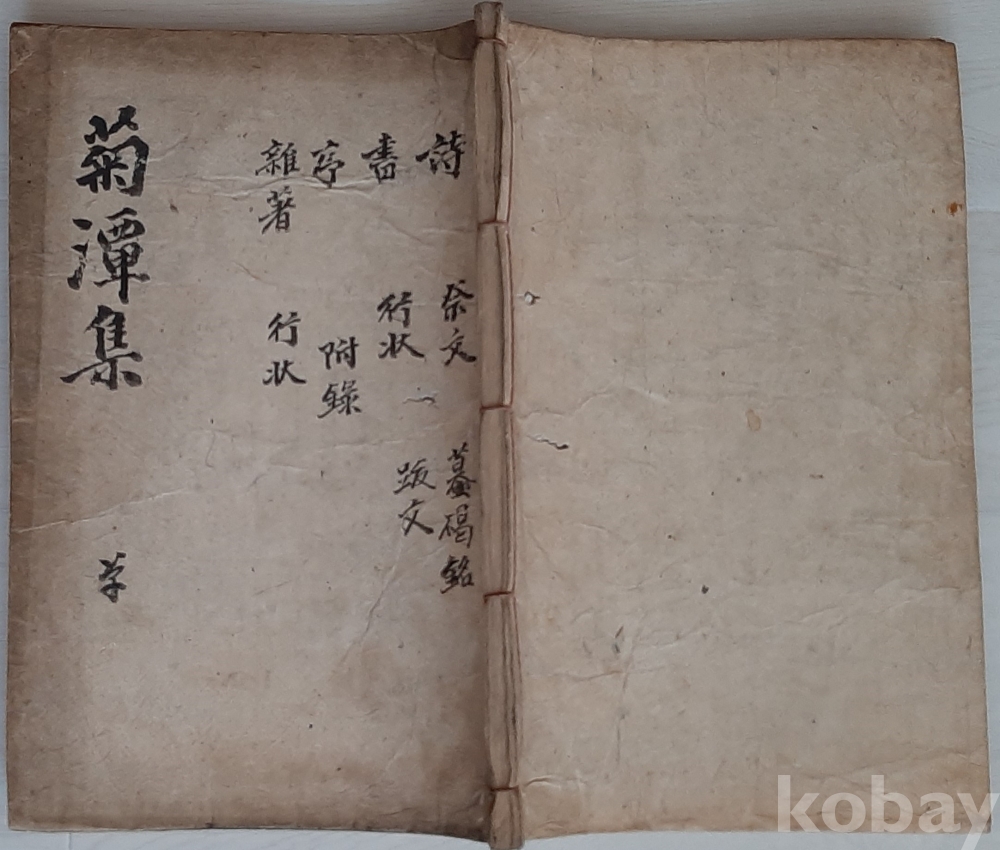 詩 祭文 墓碣銘
書 行状 跋文
序 附錄
雜著 行状
菊潭集
kobay